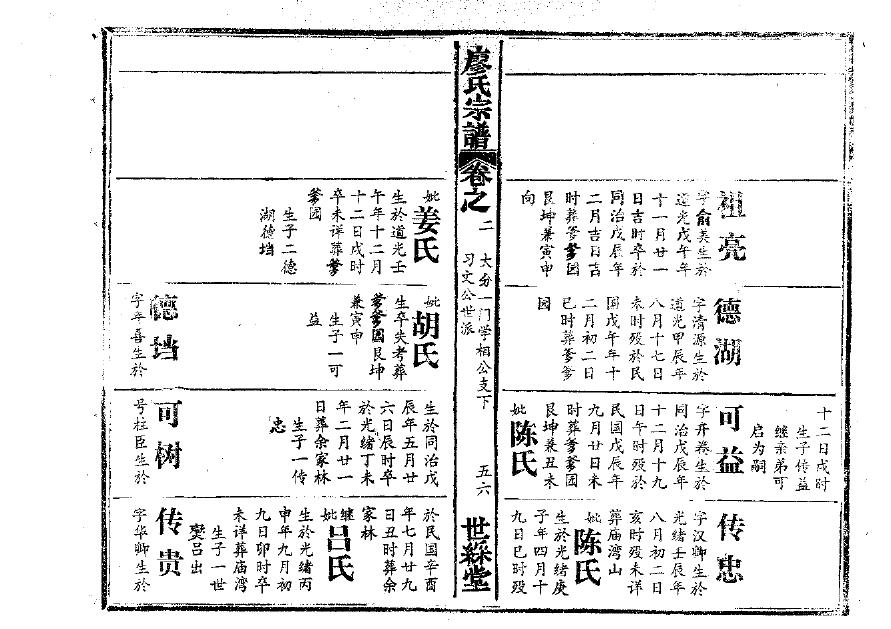 祖亮
字俞美生於
道光戊午年
十一月廿一
日吉时卒於
同治戊辰年
二月吉日吉
时葬爹爹园
艮坤兼寅申
向
德湖
字清源生於
道光甲辰年
八月十七日
未时殁於民
国戊午年十
二月初二日
巳时葬爹爹
园
十二日戌时
生子传益
继亲弟可
启为嗣
可益
字开卷生於
同治戊辰年
十二月十九
日午时殁於
民国戊辰年
九月廿日未
时葬爹爹园
艮坤兼丑未
妣陈氏
传忠
字汉卿生於
光绪壬辰年
八月初二日
亥时殁未详
葬庙湾山
妣陈氏
生於光绪庚
子年四月十
九日巳时殁
廖氏宗譜
卷之二
大分一门学相公支下
习文公世派
五六
世綵堂
妣姜氏
生於道光壬
午年十二月
十二日戌时
卒未详葬爹
爹园
生子二德
湖德垱
妣胡氏
生卒失考葬
爹爹园艮坤
兼寅申
生子一可
益
德垱
字平喜生於
生於同治戊
辰年五月廿
六日辰时卒
於光绪丁未
年二月廿一
日葬余家林
生子一传
忠
可树
号柱臣生於
於民国辛酉
年七月廿九
日丑时葬余
家林
继妣吕氏
生於光绪丙
申年九月初
九日卯时卒
未详葬庙湾
生子一世
燮吕出
传贵
字华卿生於